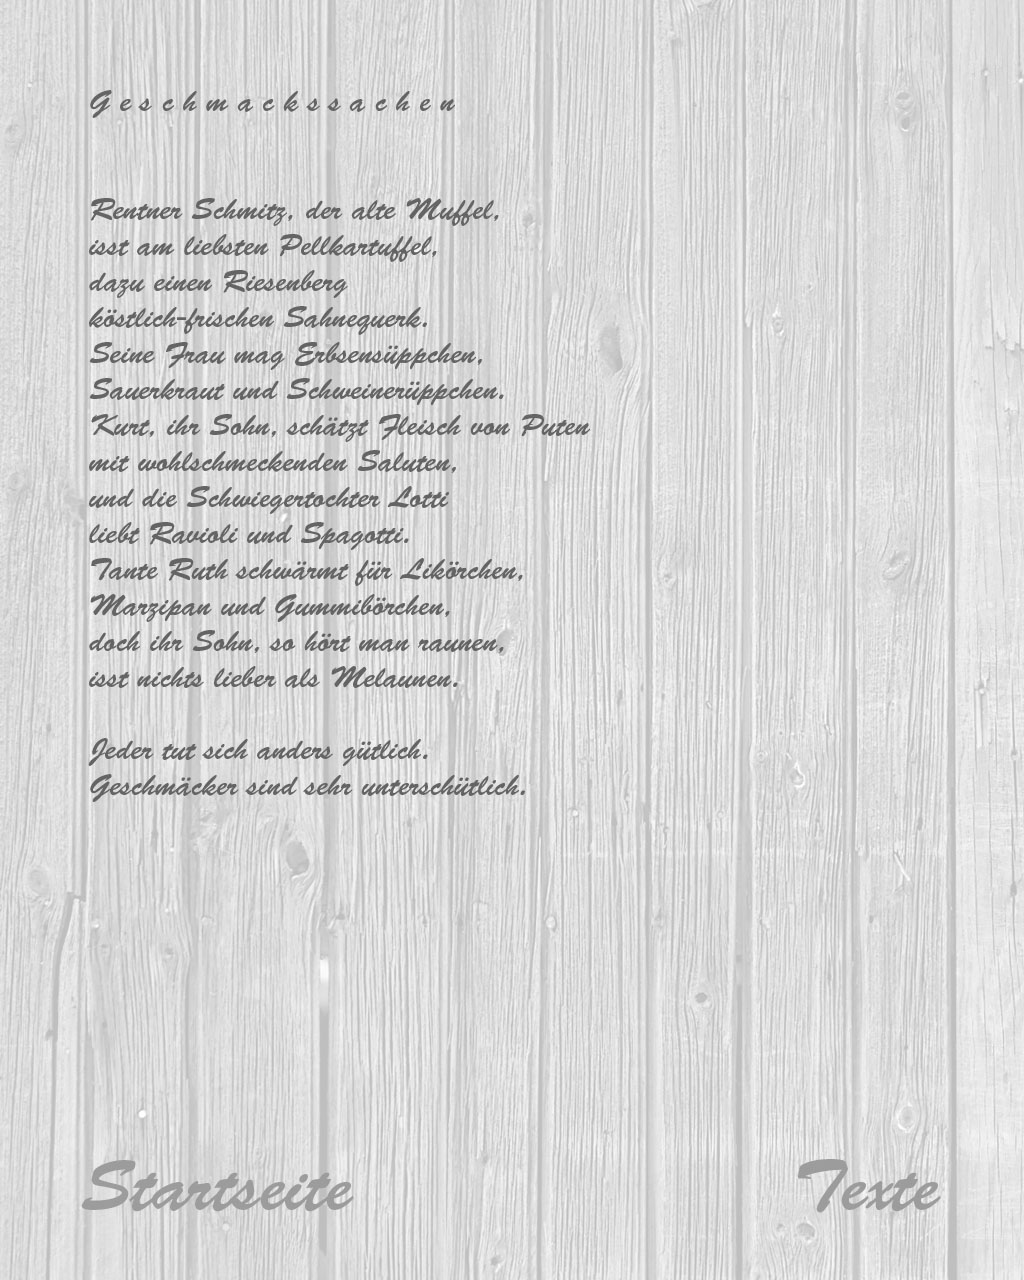 Geschmackssachen
Rentner Schmitz, der alte Muffel,
isst am liebsten Pellkartuffel,
dazu einen Riesenberg
köstlich-frischen Sahnequerk.
Seine Frau mag Erbsensüppchen,
Sauerkraut und Schweinerüppchen.
Kurt, ihr Sohn, schätzt Fleisch von Puten
mit wohlschmeckenden Saluten,
und die Schwiegertochter Lotti
liebt Ravioli und Spagotti.
Tante Ruth schwärmt für Likörchen,
Marzipan und Gummibörchen,
doch ihr Sohn, so hört man raunen,
isst nichts lieber als Melaunen.
Jeder tut sich anders gütlich.
Geschmäcker sind sehr unterschütlich.
Startseite
Texte